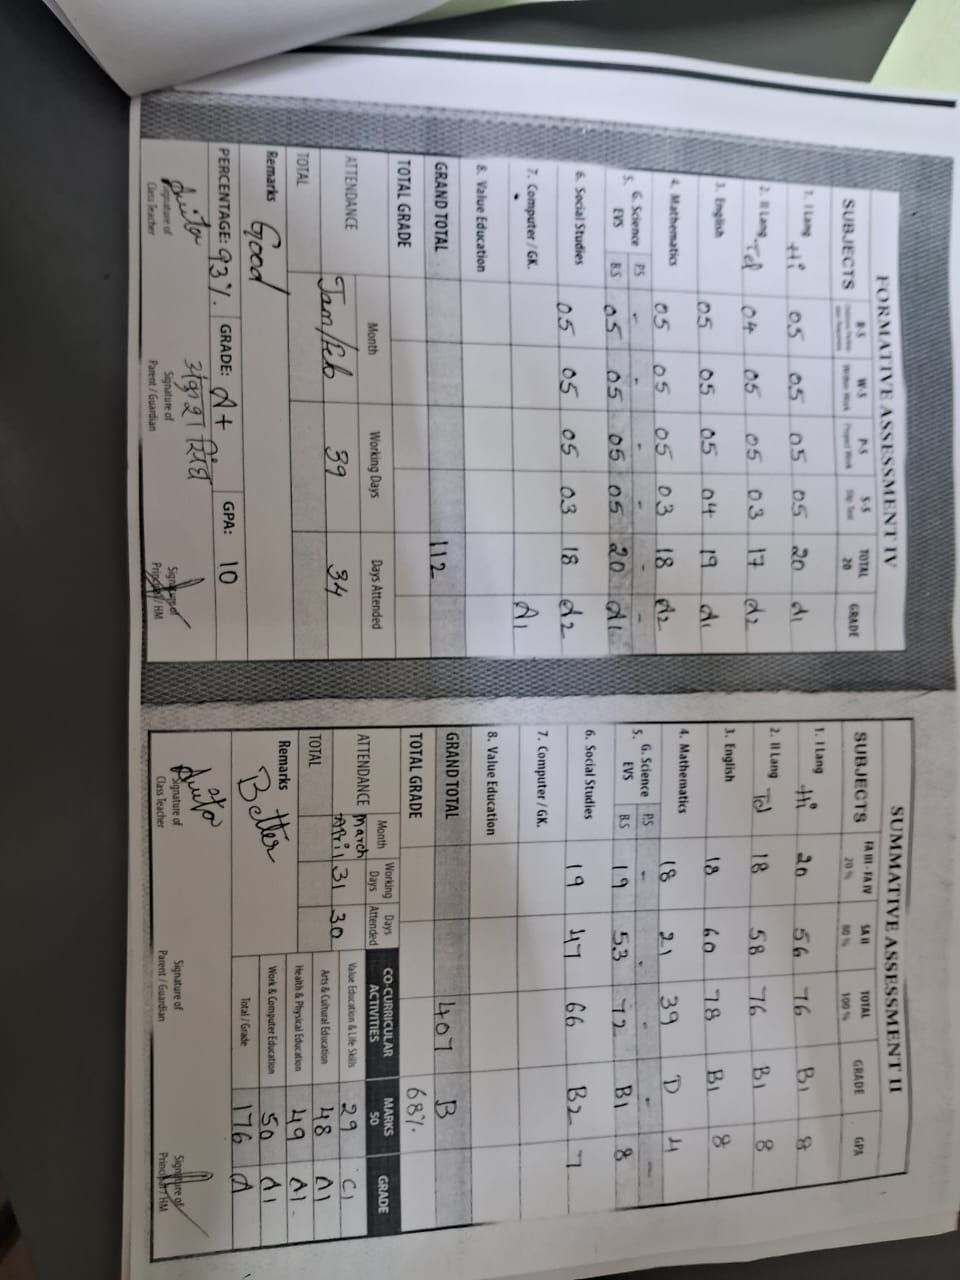 FORMATIVE ASSESSMENT IV
SUBJECTS R-S W-S P-S S-S TOTAL GRADE
Written Work Project Work Slip Test 20
1. I Lang Hi 05 05 05 05 20 A1
2. II Lang Tel 04 05 05 03 17 A2
3. English 05 05 05 04 19 A1
4. Mathematics 05 05 05 03 18 A2
5. G. Science PS - - - - - -
EVS B.S 05 05 05 05 20 A1
6. Social Studies 05 05 05 03 18 A2
7. Computer / GK. A1
8. Value Education
GRAND TOTAL 112
TOTAL GRADE
ATTENDANCE Month Working Days Days Attended
Jan/Feb 39 34
TOTAL
Remarks Good
PERCENTAGE: 93%. GRADE: A+ GPA: 10
Signature of Class Teacher
Signature of Parent / Guardian
Signature of Principal / HM
SUMMATIVE ASSESSMENT II
SUBJECTS FA III - FA IV SA II TOTAL GRADE GPA
20 % 80 % 100 %
1. I Lang Hi 20 56 76 B1 8
2. II Lang Tel 18 58 76 B1 8
3. English 18 60 78 B1 8
4. Mathematics 18 21 39 D 4
5. G. Science PS - - - - -
EVS B.S 19 53 72 B1 8
6. Social Studies 19 47 66 B2 7
7. Computer / GK.
8. Value Education
GRAND TOTAL 407 B
TOTAL GRADE 68%.
ATTENDANCE Month Working Days Days Attended
March April 31 30
TOTAL
CO-CURRICULAR ACTIVITIES MARKS 50 GRADE
Value Education & Life Skills 29 C1
Arts & Cultural Education 48 A1
Health & Physical Education 49 A1
Work & Computer Education 50 A1
Total / Grade 176 A
Remarks Better
Signature of Class Teacher
Signature of Parent / Guardian
Signature of Principal / HM